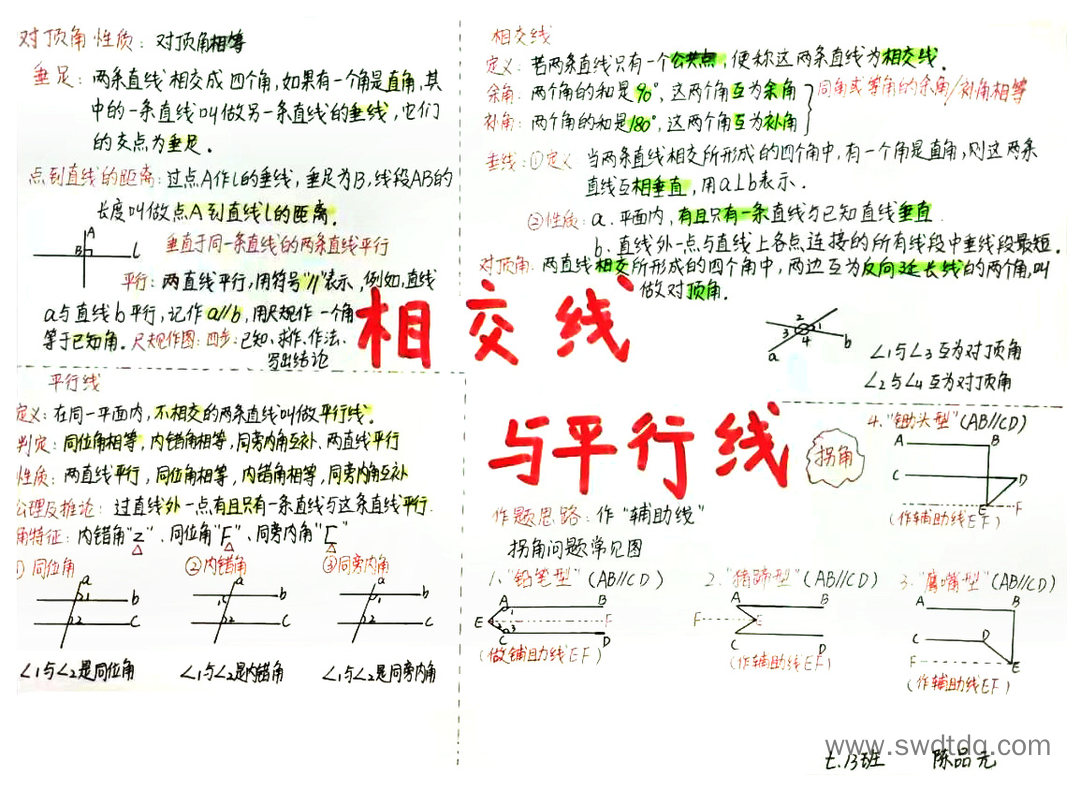 对顶角性质：对顶角相等
垂足：两条直线相交成四个角，如果有一个角是直角，其
中的一条直线叫做另一条直线的垂线，它们
的交点为垂足。
点到直线的距离：过点A作l的垂线，垂足为B，线段AB的
长度叫做点A到直线l的距离。
A
B
l
垂直于同一条直线的两条直线平行
平行：两直线平行，用符号"//"表示，例如，直线
a与直线b平行，记作a//b，用尺规作一个角
等于已知角。尺规作图：四步：已知、求作、作法、
写出结论
相交线
定义：若两条直线只有一个公共点，便称这两条直线为相交线。
余角：两个角的和是90°，这两个角互为余角
补角：两个角的和是180°，这两个角互为补角
同角或等角的余角/补角相等
垂线：①定义：当两条直线相交所形成的四个角中，有一个角是直角，则这两条
直线互相垂直，用a⊥b表示．
②性质：a．平面内，有且只有一条直线与已知直线垂直．
b．直线外一点与直线上各点连接的所有线段中垂线段最短．
对顶角：两直线相交所形成的四个角中，两边互为反向延长线的两个角，叫
做对顶角．
2
3 1
4
a
b
∠1与∠3互为对顶角
∠2与∠4互为对顶角
相交线
与平行线
平行线
定义：在同一平面内，不相交的两条直线叫做平行线．
判定：同位角相等，内错角相等，同旁内角互补，两直线平行
性质：两直线平行，同位角相等，内错角相等，同旁内角互补
公理及推论：过直线外一点有且只有一条直线与这条直线平行．
角特征：内错角"Z"、同位角"F"、同旁内角"匚"
①同位角
②内错角
③同旁内角
a
1
b
2
c
a
1
b
2
c
a
1
b
2
c
∠1与∠2是同位角
∠1与∠2是内错角
∠1与∠2是同旁内角
拐角
作题思路：作"辅助线"
拐角问题常见图
1."铅笔型"（AB//CD）
A B
E 1 2 3 F
C D
（做辅助线EF）
2."猪蹄型"（AB//CD）
A B
F E
C D
（作辅助线EF）
3."鹰嘴型"（AB//CD）
A B
C D
F E
（作辅助线EF）
4."锄头型"（AB//CD）
A B
C D
E F
（作辅助线EF）
www.swdtdq.com
七.13班 陈品元